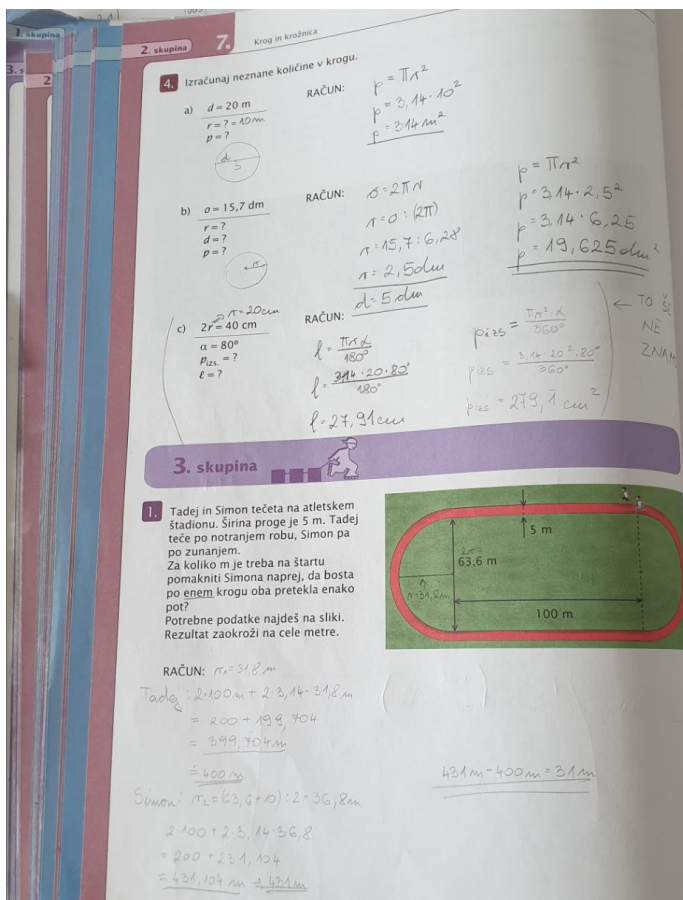 1. skupina
3. s
2
2. skupina
7.
Krog in krožnica
4. Izračunaj neznane količine v krogu.
a) d = 20 m
r = ? = 10m
p = ?
d
S
RAČUN:
p = πr²
p = 3,14·10²
p = 314 m²
b) o = 15,7 dm
r = ?
d = ?
p = ?
r
RAČUN:
o = 2πr
r = o : (2π)
r = 15,7 : 6,28
r = 2,5dm
d = 5 dm
p = πr²
p = 3,14·2,5²
p = 3,14·6,25
p = 19,625dm²
r = 20cm
c) 2r = 40 cm
α = 80°
pizs. = ?
ℓ = ?
RAČUN:
l = πrα/180°
l = 3,14·20·80°/180°
l = 27,91cm
pizs = πr²·α/360°
pizs = 3,14·20²·80°/360°
pizs = 279,1 cm²
← TO ŠE
NE
ZNAM
3. skupina
1. Tadej in Simon tečeta na atletskem
štadionu. Širina proge je 5 m. Tadej
teče po notranjem robu, Simon pa
po zunanjem.
Za koliko m je treba na štartu
pomakniti Simona naprej, da bosta
po enem krogu oba pretekla enako
pot?
Potrebne podatke najdeš na sliki.
Rezultat zaokroži na cele metre.
5 m
2r=
63,6 m
r
r=31,8m
100 m
RAČUN: r₁=31,8 m
Tadej: 2·100m + 2·3,14·31,8m
= 200 + 199,704
= 399,704m
≐ 400m
Simon: r₂=(63,6+10):2=36,8m
2·100+2·3,14·36,8
= 200+231,104
= 431,104m ≐ 431m
431m - 400m = 31m